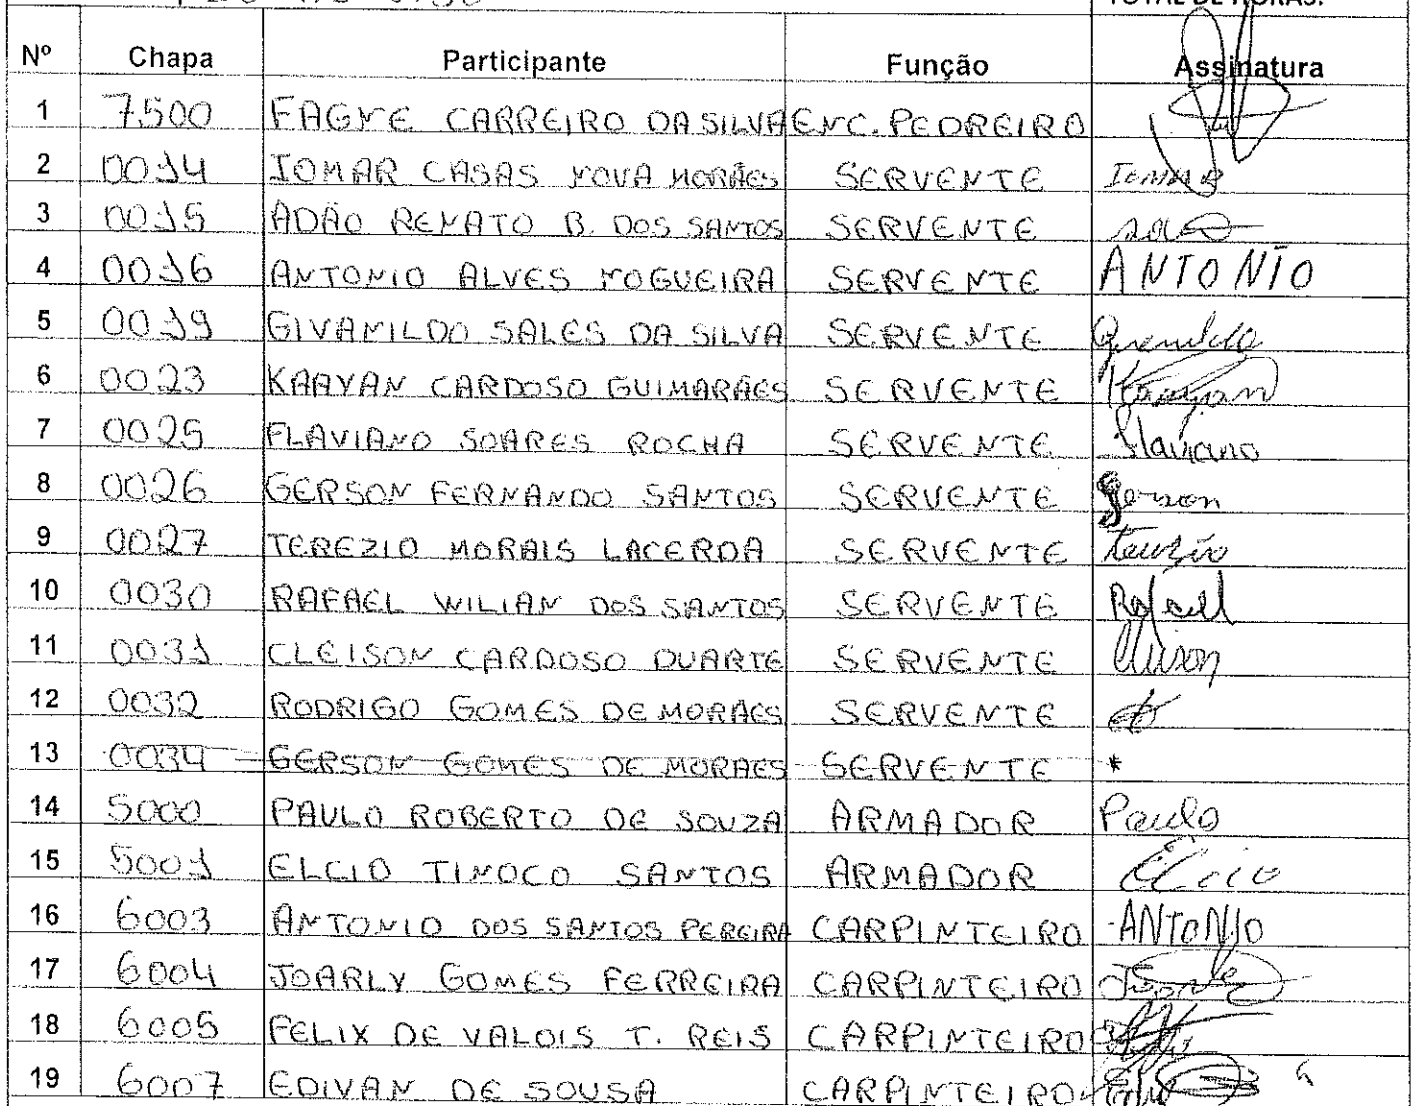 TOTAL DE HORAS:
Nº Chapa Participante Função Assinatura
1 7500 FAGNE CARREIRO DA SILVA ENC. PEDREIRO
2 0014 IOMAR CASAS NOVA MORAES SERVENTE Iomar
3 0015 ADÃO RENATO B. DOS SANTOS SERVENTE
4 0016 ANTONIO ALVES NOGUEIRA SERVENTE ANTONIO
5 0019 GIVANILDO SALES DA SILVA SERVENTE
6 0023 KAAYAN CARDOSO GUIMARÃES SERVENTE
7 0025 FLAVIANO SOARES ROCHA SERVENTE Flaviano
8 0026 GERSON FERNANDO SANTOS SERVENTE Gerson
9 0027 TEREZIO MORAIS LACERDA SERVENTE
10 0030 RAFAEL WILIAN DOS SANTOS SERVENTE Rafaell
11 0031 CLEISON CARDOSO DUARTE SERVENTE
12 0032 RODRIGO GOMES DE MORAES SERVENTE
13 0034 GERSON GOMES DE MORAES SERVENTE *
14 5000 PAULO ROBERTO DE SOUZA ARMADOR Paulo
15 5001 ELCIO TINOCO SANTOS ARMADOR Elcio
16 6003 ANTONIO DOS SANTOS PEREIRA CARPINTEIRO ANTONIO
17 6004 JOARLY GOMES FERREIRA CARPINTEIRO
18 6005 FELIX DE VALOIS T. REIS CARPINTEIRO
19 6007 EDIVAN DE SOUSA CARPINTEIRO